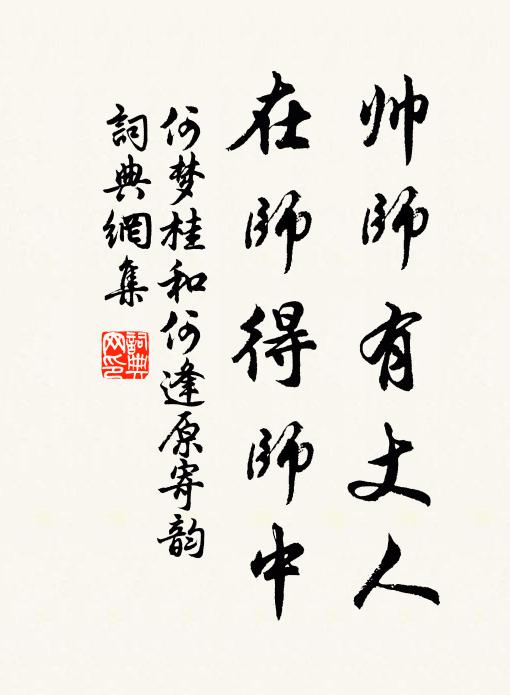 帅师有丈人
在师得师中
何梦桂和何逢原寄韵
詞典網集
詞典网印